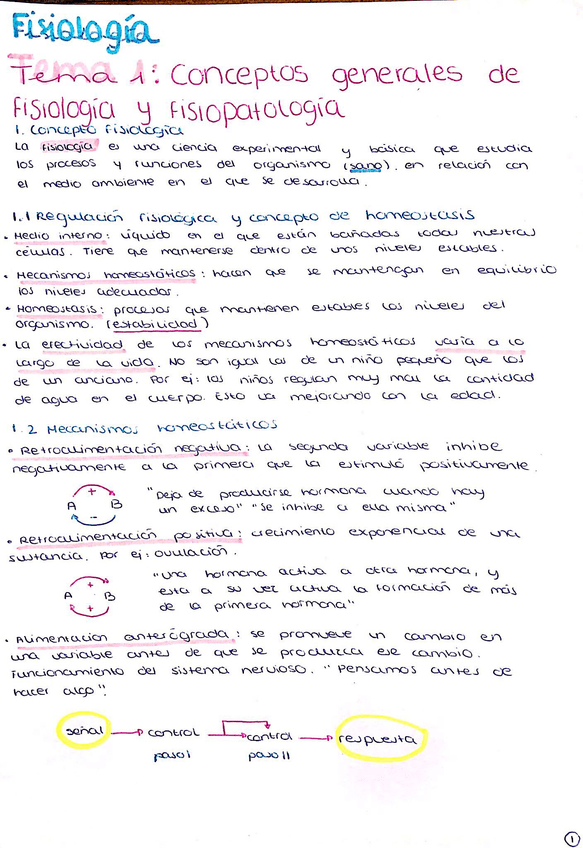 Fisiología
Tema 1: Conceptos generales de
fisiología y fisiopatología
1. Concepto fisiología
La fisiología es una ciencia experimental y básica que estudia
los procesos y funciones del organismo (sano), en relación con
el medio ambiente en el que se desarrolla.
1.1 Regulación fisiológica y concepto de homeostasis
• Medio interno: líquido en el que están bañadas todas nuestras
células. Tiene que mantenerse dentro de unos niveles estables.
• Mecanismos homeostáticos: hacen que se mantengan en equilibrio
los niveles adecuados.
• Homeostasis: procesos que mantienen estables los niveles del
organismo. (estabilidad)
• La efectividad de los mecanismos homeostáticos varía a lo
largo de la vida. No son igual los de un niño pequeño que los
de un anciano. Por ej: los niños regulan muy mal la cantidad
de agua en el cuerpo. Esto va mejorando con la edad.
1.2 Mecanismos homeostáticos
• Retroalimentación negativa: la segunda variable inhibe
negativamente a la primera que la estimuló positivamente.
+
A B
-
"Deja de producirse hormona cuando hay
un exceso" "Se inhibe a ella misma"
• Retroalimentación positiva: crecimiento exponencial de una
sustancia. Por ej: ovulación.
+
A B
+
"Una hormona activa a otra hormona, y
esta a su vez activa la formación de más
de la primera hormona"
• Alimentación anterógrada: se promueve un cambio en
una variable antes de que se produzca ese cambio.
Funcionamiento del sistema nervioso. "Pensamos antes de
hacer algo".
señal control control respuesta
paso I paso II
1